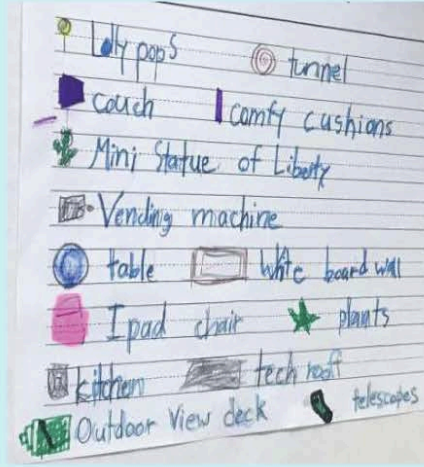 Lolly pops tunnel
couch comfy cushions
Mini Statue of Liberty
Vending machine
table White board wall
Ipad chair plants
kitchen tech rooff
Outdoor View deck telescopes